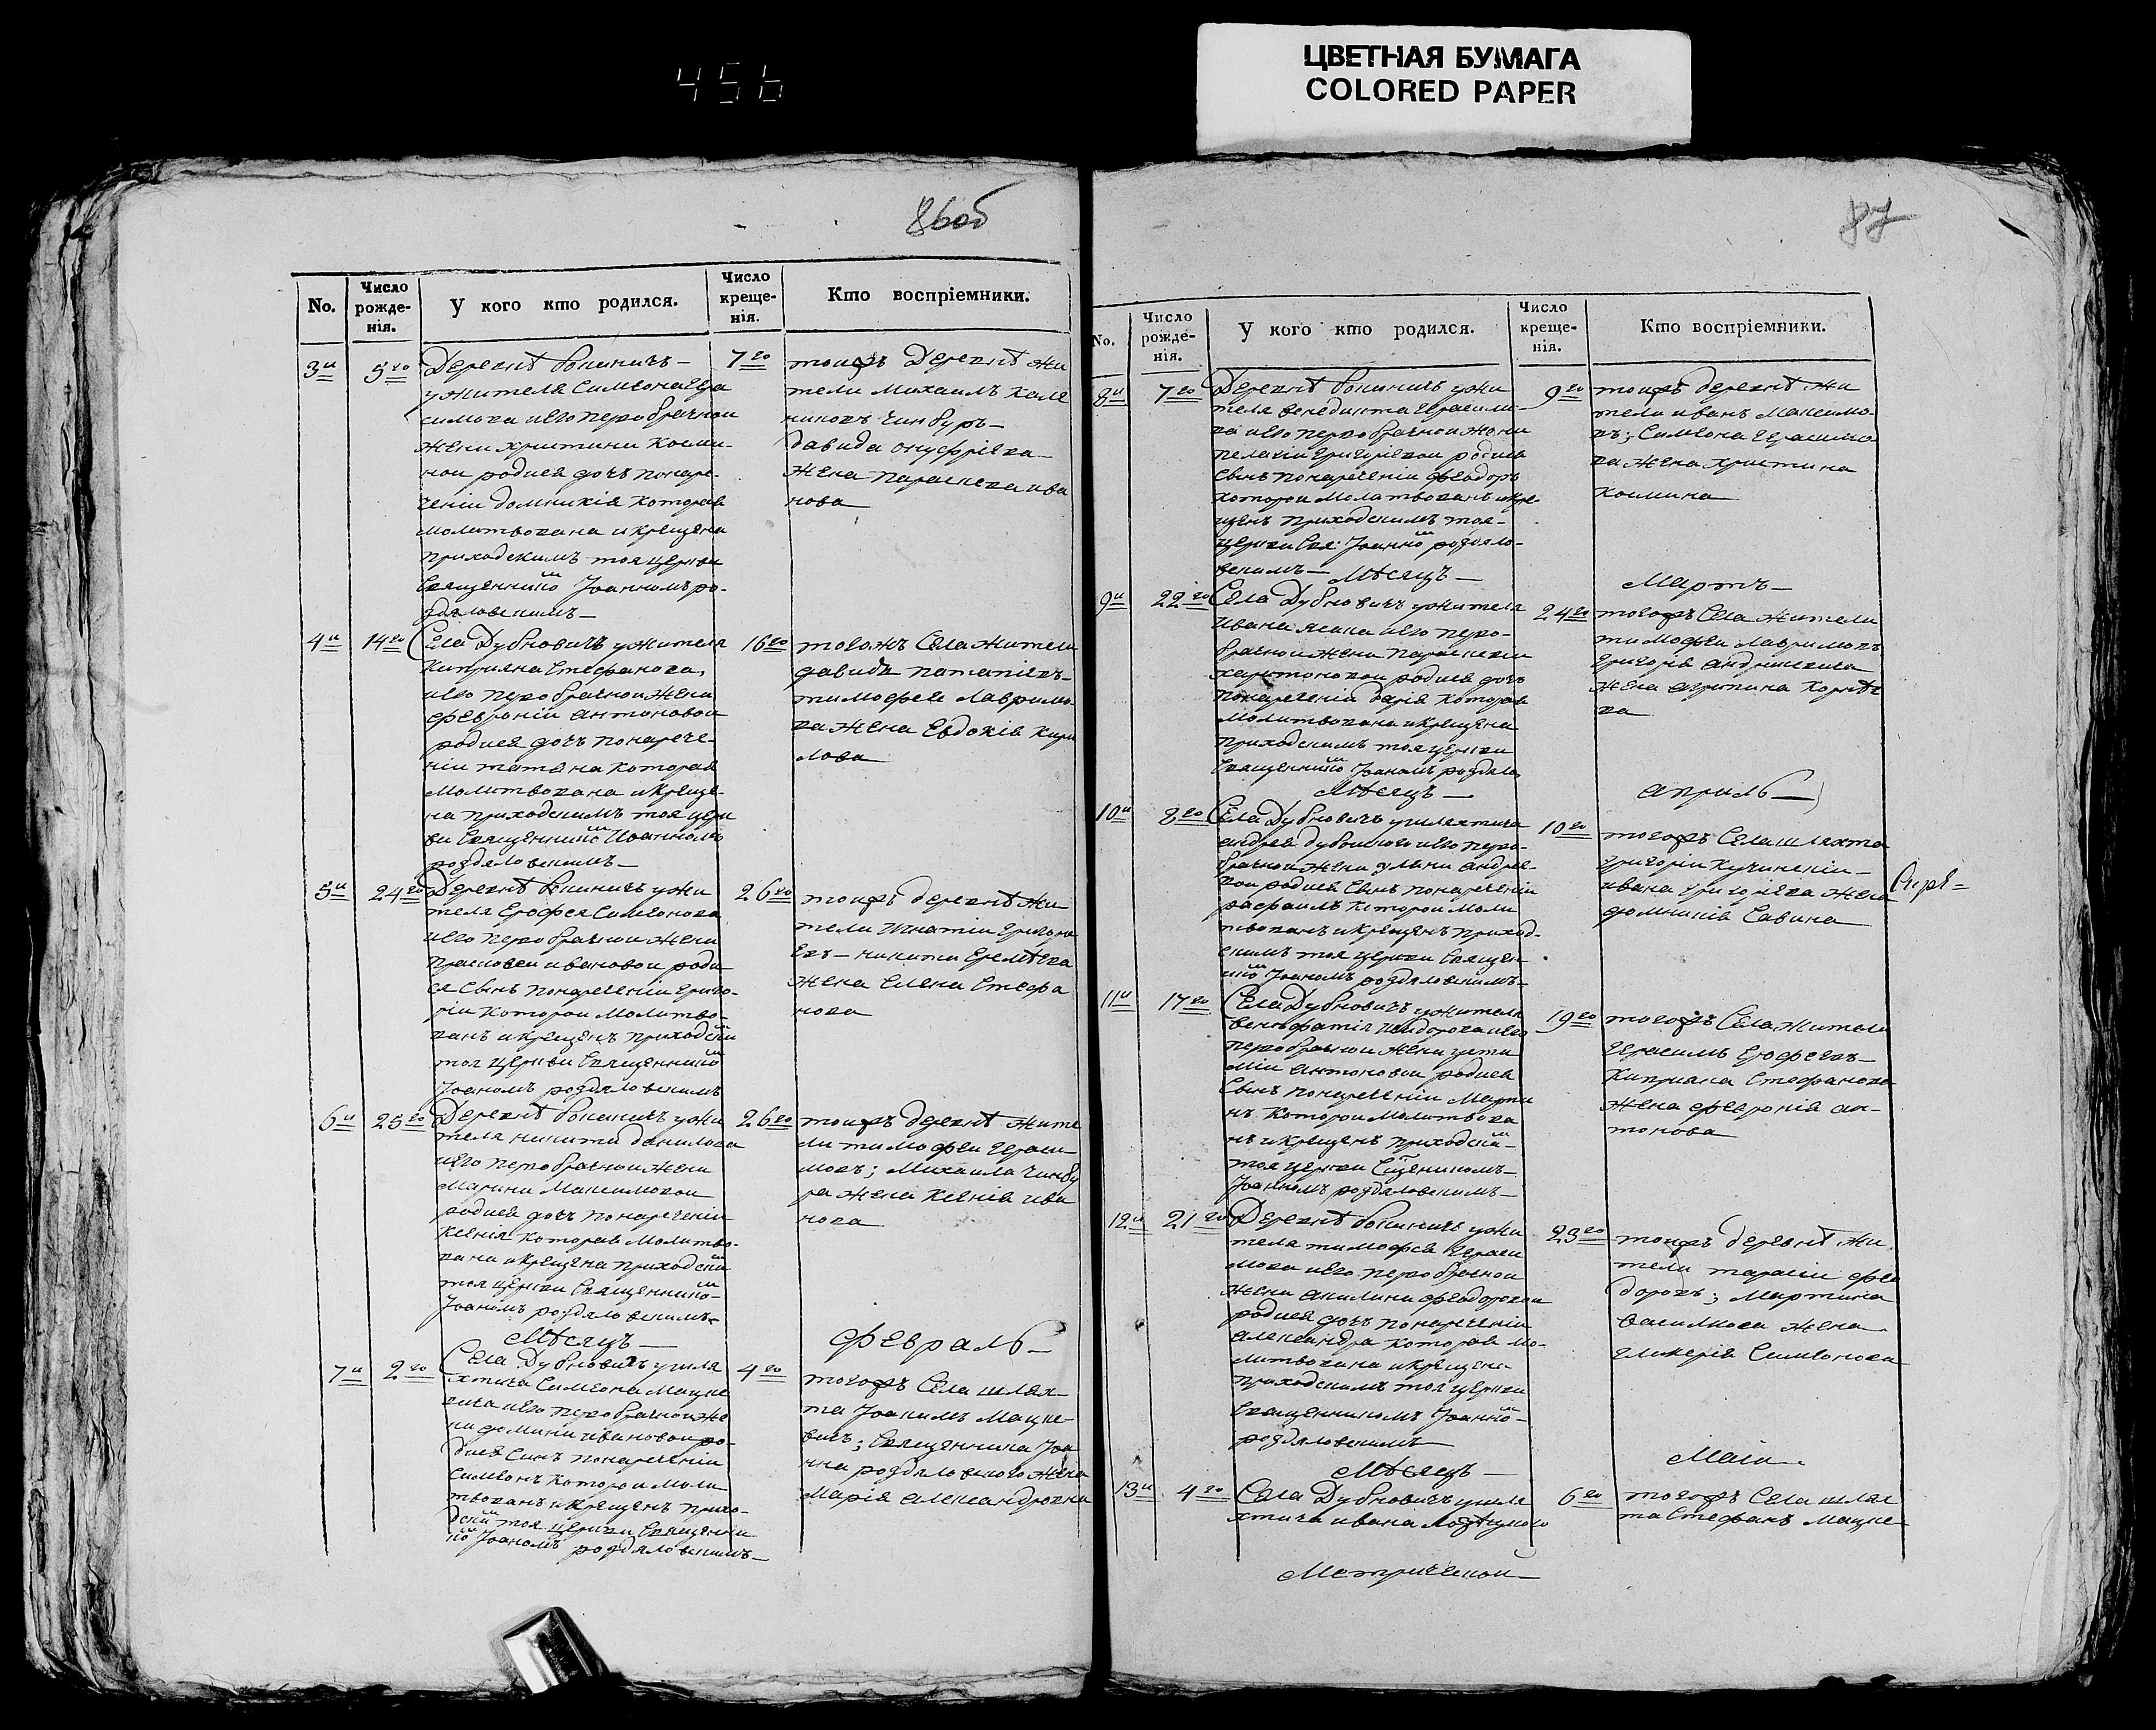 456
ЦВЕТНАЯ БУМАГА
COLORED PAPER
86об
No.
Число рожде-нія.
У кого кто родился.
Число креще-нія.
Кто воспріемники.
3и
5го
Деревнѣ
ужителя Симеона Гера
симова иего перобрачнои
жени христини косми-
нои родися дочъ понаре-
ченіи домникія которая
молитвована икрещена
приходскимъ тоя церкви
священнико Іоанномъ ро-
здяловскимъ
7го
тоижъ Деревнѣ жи
тели Михаилъ
Чинбуръ
давида онуфріева
жена параскева ива
нова
4и
14го
Села Дубновичъ ужителя
Киприяна Стефанова,
иего перобрачнои жени
февроніи антоновои
родися дочъ понарече-
ніи татяна которая
молитвована икреще-
на приходскимъ тоя церк
ви священнико Иоанномъ
роздяловскимъ
16го
тогожъ Села жители
давидъ
тимофея лавримо-
ва жена Евдокія кири
лова
5и
24го
Деревнѣ ужи
теля Ерофея Симеонова
иего перобрачнои жени
ивановои роди
ся сынъ понареченіи григо-
ріи которои молитво-
ванъ икрещенъ приходски
тоя церкви священнико
Іоаномъ роздяловскимъ
26го
тоижъ деревнѣ жи
тели Игнатіи
никити Еремѣева
жена Елена Стефа
нова
6и
25го
Деревнѣ ужи
теля никити данилова
иего перобрачнои жени
Марини Максимовои
родися дочъ понареченіи
Ксенія которая молитво-
вана икрещена приходски
тоя церкви священнико
Іоаномъ роздяловскимъ
26го
тоижъ деревнѣ жите
ли тимофеи гераси
мовъ; Михаила Чинбу
ра жена Ксенія ива
нова
Мѣсяцъ
февраль
7и
2го
Села Дубновичъ ушля
хтича Симеона Мацке
вича иего перобрачнои же
ни домнии ивановои ро-
дися синъ понареченіи
Симеонъ которои моли
твованъ икрещенъ прихо-
дски тоя церкви священни
ко Іоаномъ роздяловскимъ
4го
тогожъ Села шлях-
та Іоакимъ Мацке-
вичъ; священника Іоа
нна роздяловского жена
Марія александровна
87
No.
Число рожде-нія.
У кого кто родился.
Число креще-нія.
Кто воспріемники.
8и
7го
Деревнѣ ужи
теля венедикта герасимо-
ва иего перобрачнои жени
пелагіи григоріевои родися
сынъ понареченіи феодоръ
которои молитвованъ икре-
щенъ приходскимъ тоя
церкви свя: Іоанно роздяло-
вскимъ
9го
тоижъ деревнѣ жи
тели иванъ Максимо-
въ; Симеона герасимо
ва жена христина
космина
Мѣсяцъ
Мартъ
9и
22го
Села Дубновичъ ужителя
Ивана иего перо-
брачнои жени параскеви
харитоновои родися дочъ
понареченіи дарія которая
молитвована икрещена
приходскимъ тоя церкви
священнико Іоаномъ роздяло
24го
тогожъ Села жители
тимофеи лавримовъ
григорія андриевича
жена агрипина корнѣе
ва
Мѣсяцъ
априль
10и
8го
Села Дубновичъ ушляхтича
андрея дубоиского иего перо-
брачнои жени улияни андрее-
вои родися сынъ понареченіи
рафаилъ которои моли
твованъ икрещенъ приход-
скимъ тоя церкви священ
нико Іоаномъ роздяловскимъ
10го
тогожъ Села шляхта
григоріи
ивана григоріева жена
домникія Савина
11и
17го
Села Дубновичъ ужителя
иего
перобрачнои жени
антоновои родися
сынъ понареченіи Марти
нъ которои молитвова
нъ икрещенъ приходски
тоя церкви сщеникомъ
Іоанномъ роздяловскимъ
19го
тогожъ Села жители
герасимъ Ерофеевъ
Киприяна Стефанова
жена февронія ан-
тонова
12и
21го
Деревнѣ ужи
теля тимофея гераси
мова иего перобрачнои
жени акилини феодоровои
родися дочъ понареченіи
александра которая мо-
литвована икрещена
приходскимъ тоя церкви
священникомъ Іоанно
роздяловскимъ
23го
тоижъ деревнѣ жи
тели тарасіи фео
доровъ; Мартина
василиова жена
гликерія Симеонова
Мѣсяцъ
Маіи
13и
4го
Села Дубновичъ ушля
хтича ивана
6го
тогожъ Села шлях
та Стефанъ Мацке-
Метрической